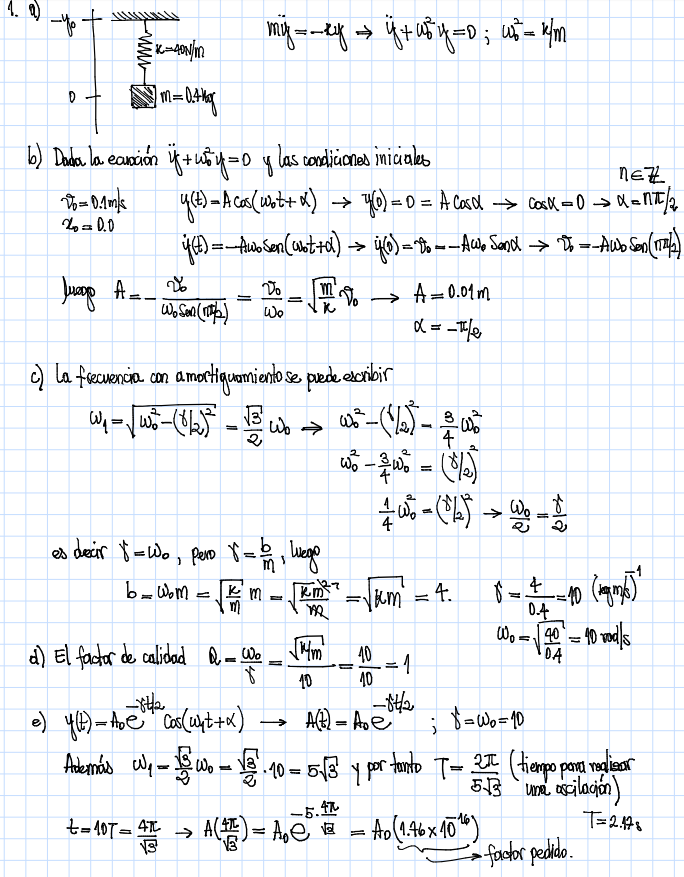 1. a) -y₀
k=40N/m
0
m=0.4kg
mÿ=-ky → ÿ+ω₀²y=0 ; ω₀²=k/m
b) Dada la ecuación ÿ+ω₀²y=0 y las condiciones iniciales
v₀=0.1m/s
x₀=0.0
y(t)=Acos(ω₀t+α) → y(0)=0=Acosα → cosα=0 → α=nπ/2
n∈ℤ
ẏ(t)=-Aω₀sen(ω₀t+α) → ẏ(0)=v₀=-Aω₀senα → v₀=-Aω₀sen(nπ/2)
luego A=-v₀/(ω₀sen(nπ/2)) = v₀/ω₀ = √(m/k) v₀ → A=0.01m
α=-π/2
c) La frecuencia con amortiguamiento se puede escribir
ω₁=√(ω₀²-(γ/2)²) = √3/2 ω₀ ⇒ ω₀²-(γ/2)² = 3/4 ω₀²
ω₀²-3/4ω₀² = (γ/2)²
1/4 ω₀² = (γ/2)² → ω₀/2 = γ/2
es decir γ=ω₀, pero γ=b/m, luego
b=ω₀m=√(k/m) m = √(km²/m) = √(km) = 4.
γ=4/0.4=10 (kg m/s)⁻¹
ω₀=√(40/0.4)=10 rad/s
d) El factor de calidad Q=ω₀/γ = √(k/m)/10 = 10/10 = 1
e) y(t)=A₀e^(-γt/2) cos(ω₁t+α) → A(t)=A₀e^(-γt/2) ; γ=ω₀=10
Además ω₁=√3/2 ω₀ = √3/2 · 10 = 5√3 y por tanto T=2π/5√3 (tiempo para realizar
una oscilación)
t=10T=4π/√3 → A(4π/√3) = A₀e^(-5·4π/√3) = A₀(1.76×10⁻¹⁶)
factor pedido.